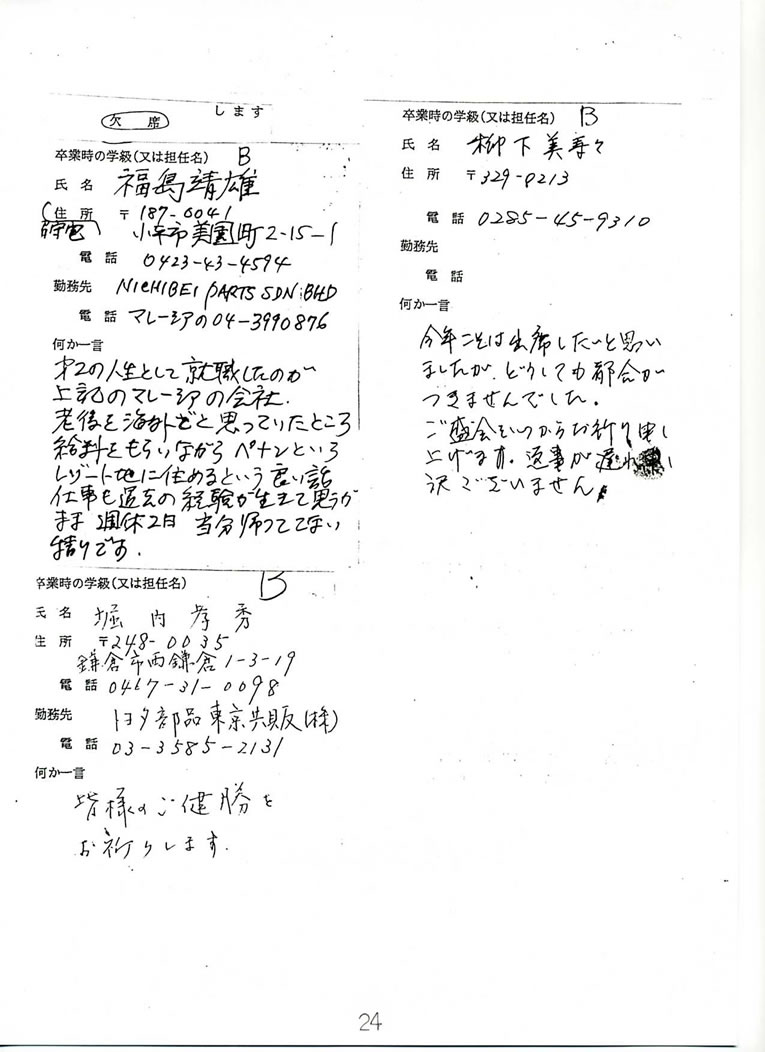 します
欠 席
卒業時の学級(又は担任名) B
氏 名 福島靖雄
(住 所 〒187-0041
小平市美園町2-15-1
電 話 0423-43-4594
勤務先 NICHIBEI PARTS SDN.BHD
電 話 マレーシアの04-3990876
何か一言
才2の人生として就職したのが
上記のマレーシアの会社.
老後を海外でと思っていたところ
給料をもらいながら ペナンという
レゾート地に住めるという良い話
仕事も過去の経験が生きて思うが
まま 週休2日 当分帰ってこない
積りです.
卒業時の学級(又は担任名) B
氏 名 堀内孝秀
住 所 〒248-0035
鎌倉市西鎌倉1-3-19
電 話 0467-31-0098
勤務先 トヨタ部品東京共販(株)
電 話 03-3585-2131
何か一言
皆様のご健勝を
お祈りします.
卒業時の学級(又は担任名) B
氏 名 柳下美寿々
住 所 〒329-0213
電 話 0285-45-9310
勤務先
電 話
何か一言
今年こそは出席したいと思い
ましたが、どうしても都合が
つきませんでした。
ご盛会を心からお祈り申し
上げます。返事が遅れ
訳ございません。
24